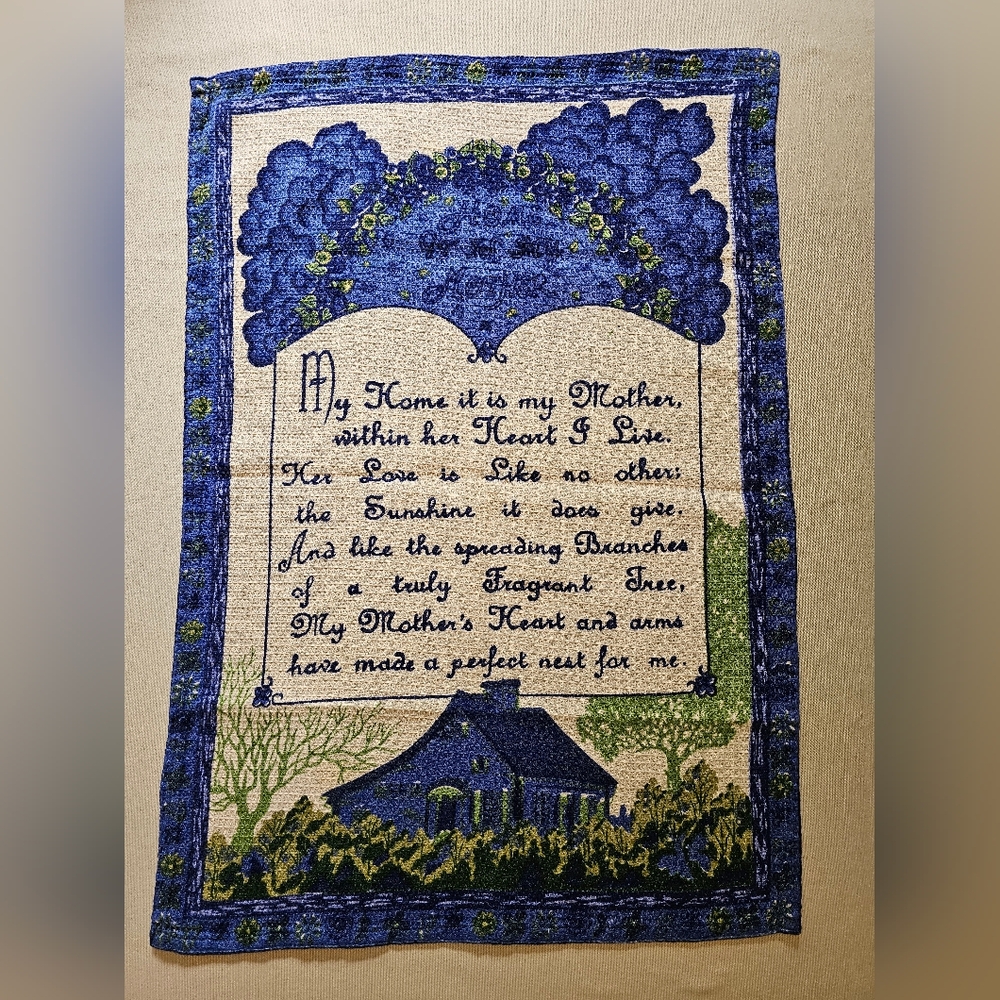 My Home it is my Mother,
within her Heart I Live.
Her Love is Like no other;
the Sunshine it does give.
And like the spreading Branches
of a truly Fragrant Tree,
My Mother's Heart and arms
have made a perfect nest for me.